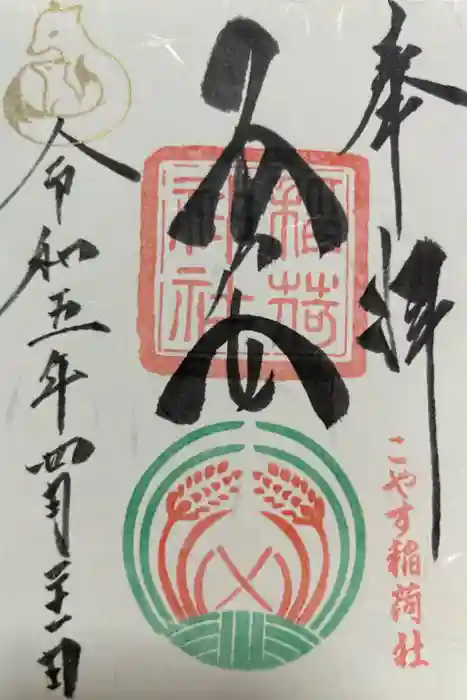 奉拝
こやす稲荷社
稲荷
神社
令和五年四月二十一日